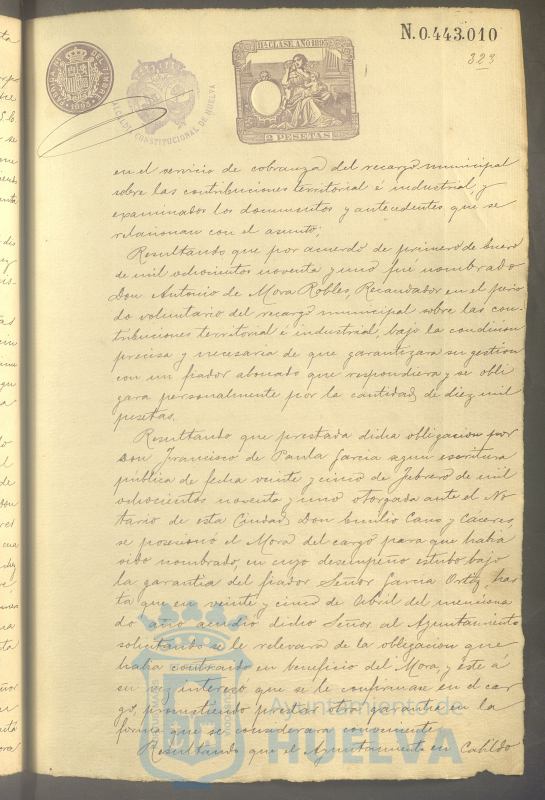 N.0.443.010
323
11ª CLASE. AÑO 1895
1895
ALCALDIA CONSTITUCIONAL DE HUELVA
2 PESETAS
en el servicio de cobranza del recargo municipal
sobre las contribuciones territorial é industrial, y
examinados los documentos y antecedentes que se
relacionan con el asunto;
Resultando que por acuerdo de primero de Enero
de mil ochocientos noventa y uno fué nombrado
Don Antonio de Mora Robles, Recaudador en el perio-
do voluntario del recargo municipal sobre las con-
tribuciones territorial é industrial, bajo la condicion
precisa y necesaria de que garantizara su gestion
con un fiador abonado que respondiera y se obli
gara personalmente por la cantidad de diez mil
pesetas.
Resultando que prestada dicha obligacion por
Don Francisco de Paula Garcia segun escritura
pública de fecha veinte y cinco de Febrero de mil
ochocientos noventa y uno otorgada ante el No-
tario de esta Ciudad, Don Emilio Cano y Cáceres,
se posesionó el Mora del cargo para que habia
sido nombrado, en cuyo desempeño estubo bajo
la garantia del fiador Señor Garcia Ortiz, has-
ta que en veinte y cinco de Abril del menciona-
do año acudio dicho Señor al Ayuntamiento
solicitando se le relevara de la obligacion que
habia contraido en beneficio del Mora, y éste á
su vez interesó que se le confirmase en el car
go, prometiendo prestar otra garantia en la
forma que se considerara conveniente.
Resultando que el Ayuntamiento en Cabildo
Ayuntamiento de
HUELVA